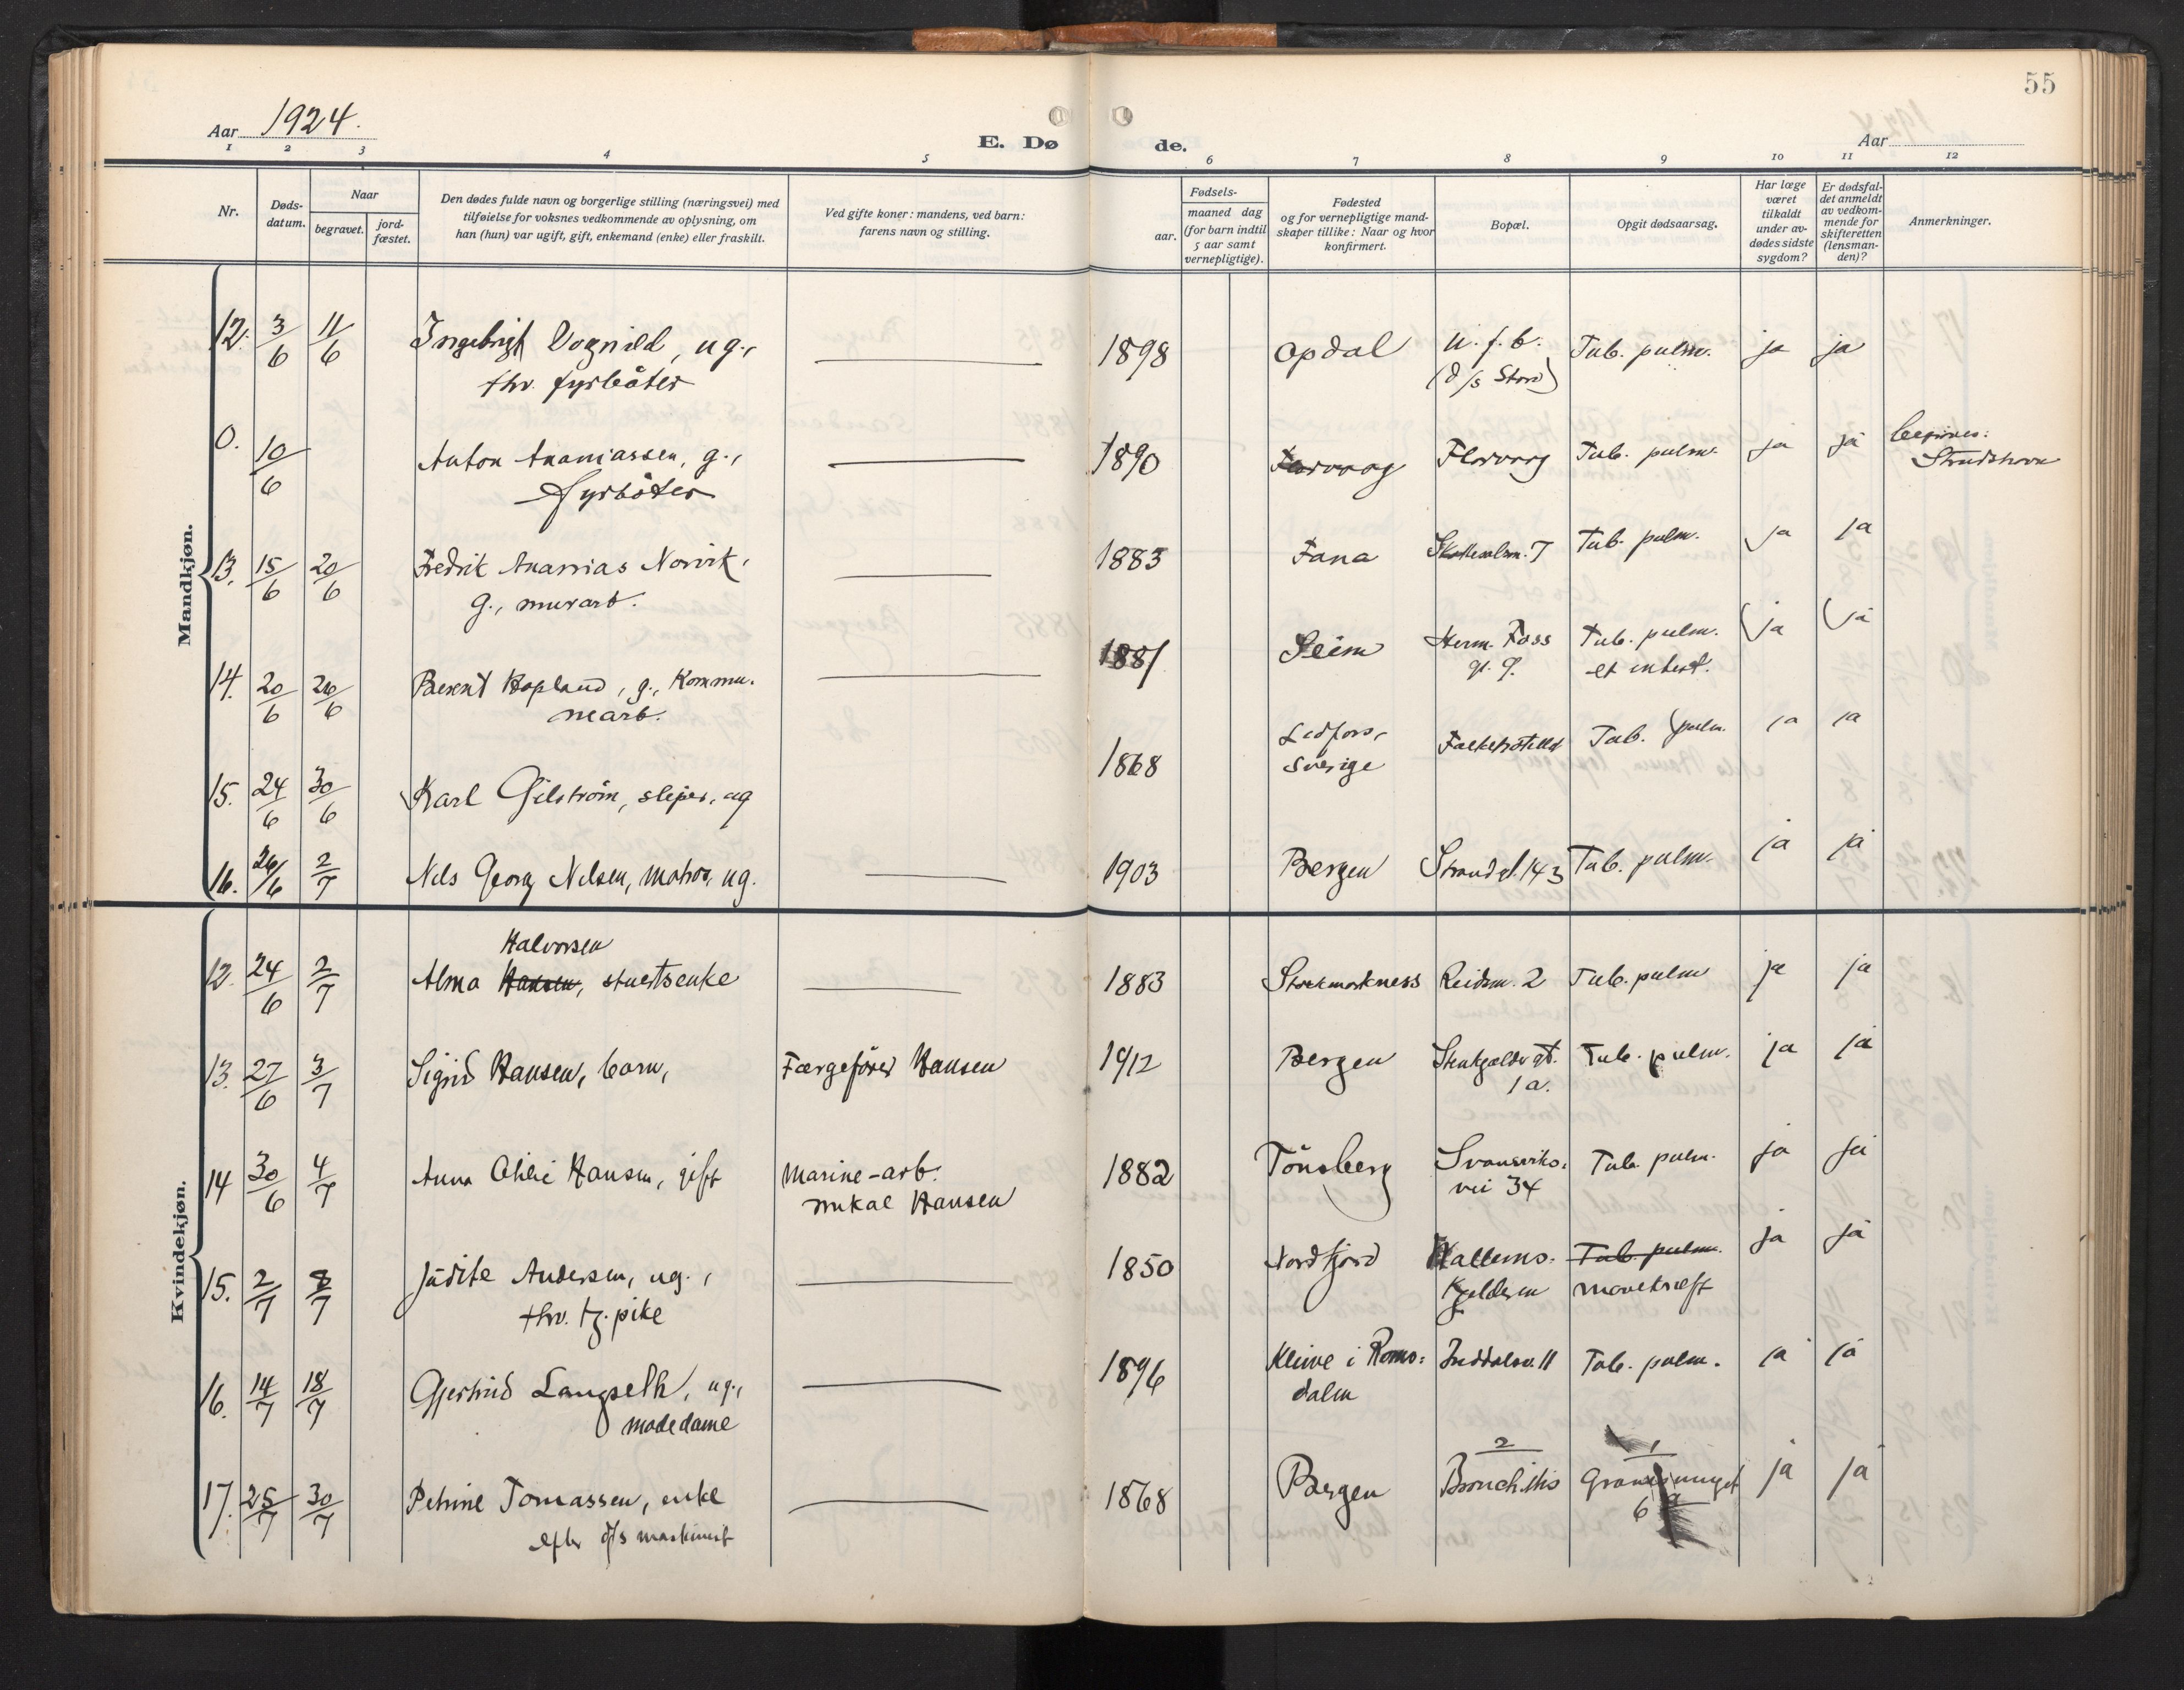 55
Aar 1924.
E. Døde.
Aar
1 2 3 4 5 6 7 8 9 10 11 12
Nr.
Døds-
datum.
Naar
begravet.
jord-
fæstet.
Den dødes fulde navn og borgerlige stilling (næringsvei) med
tilføielse for voksnes vedkommende av oplysning, om
han (hun) var ugift, gift, enkemand (enke) eller fraskilt.
Ved gifte koner: mandens, ved barn:
farens navn og stilling.
Fødsels-
aar.
maaned dag
(for barn indtil
5 aar samt
vernepligtige).
Fødested
og for vernepligtige mand-
skaper tillike: Naar og hvor
konfirmert.
Bopæl.
Opgit dødsaarsag.
Har læge
været
tilkaldt
under av-
dødes sidste
sygdom?
Er dødsfal-
det anmeldt
av vedkom-
mende for
skifteretten
(lensman-
den)?
Anmerkninger.
Mandkjøn.
12. 3/6 11/6 Ingebrigt Vognild, ug., 1898 Opdal u. f. b. Tub. pulm. ja ja
fhv. fyrbøter (d/s Stord)
0. 10/6 Anton Ananiassen, g., 1890 Florvaag Tub. pulm. ja ja
fyrbøter
13. 15/6 20/6 Fredrik Ananias Norvik, 1883 Fana Tub. pulm. ja ja
g., murarb.
14. 20/6 26/6 Berent Hopland, g., Kommu- 1881 Seim Herm. Foss Tub. pulm. ja ja
nearb. gt. 9. et intest.
15. 24/6 30/6 Karl Gilström, sliper, ug 1868 Sverige Tub. pulm. ja ja
16. 26/6 2/7 Nils Georg Nilsen, matros, ug. 1903 Bergen Strandgt. 143 Tub. pulm. ja ja
Kvindekjøn.
Halvorsen
12. 24/6 2/7 Alma Hansen, stuertsenke 1883 Stokmarkness Reidm. 2 Tub. pulm ja ja
13. 27/6 3/7 Sigrid Hansen, barn, Færgefører Hansen 1912 Bergen Stenkjeldergt. Tub. pulm. ja ja
1a.
14 30/6 4/7 Anna Hansen, gift Marine-arb. 1882 Tönsberg Svansviks- Tub. pulm. ja ja
Mikal Hansen vei 34
15. 2/7 8/7 Jådite Andersen, ug., 1850 Nordfjord Kallems- Tub. pulm. ja ja
fhv. tj. pike mavekræft
16. 14/7 18/7 Gjertrud Langseth, ug., 1896 Kleive i Roms- Inddalsv. 11 Tub. pulm. ja ja
modedame dalen
2 1
17. 25/7 30/7 Petrine Tomassen, enke 1868 Bergen Bronchitis ja ja
efter d/s maskinist